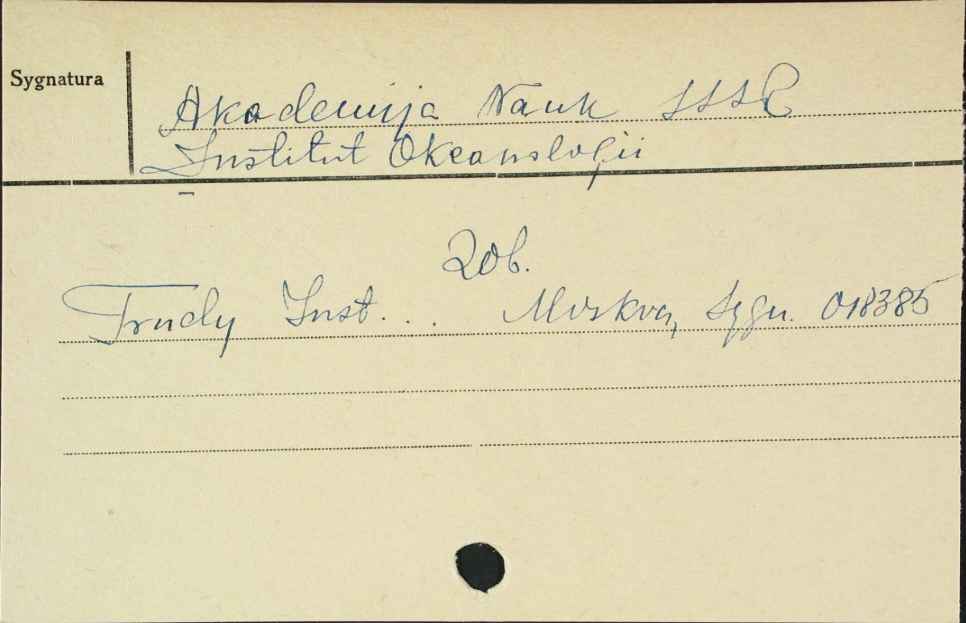 Sygnatura
Akademija Nauk SSSR
Institut Okeanologii
Zob.
Trudy Inst... Moskva, Sygn. 018385